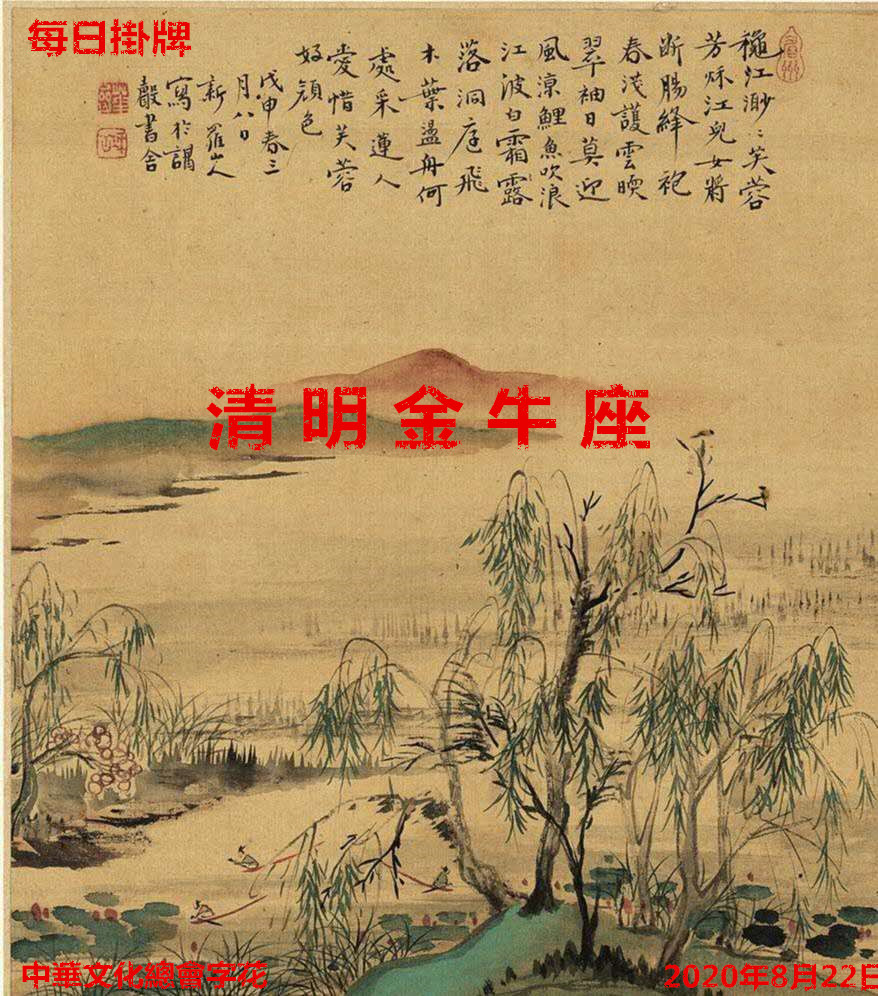 每日掛牌
穐江渺〻芙蓉
芳秌江兒女將
断腸絳袍
春淺護雲暖
翠袖日莫迎
風涼鯉魚吹浪
江波白霜露
落洞庭飛
木葉盪舟何
處采蓮人
愛惜芙蓉
好顏色
戊申春三
月八日
新羅山人
寫於謁
書舍
清明金牛座
中華文化總會字花
2020年8月22日